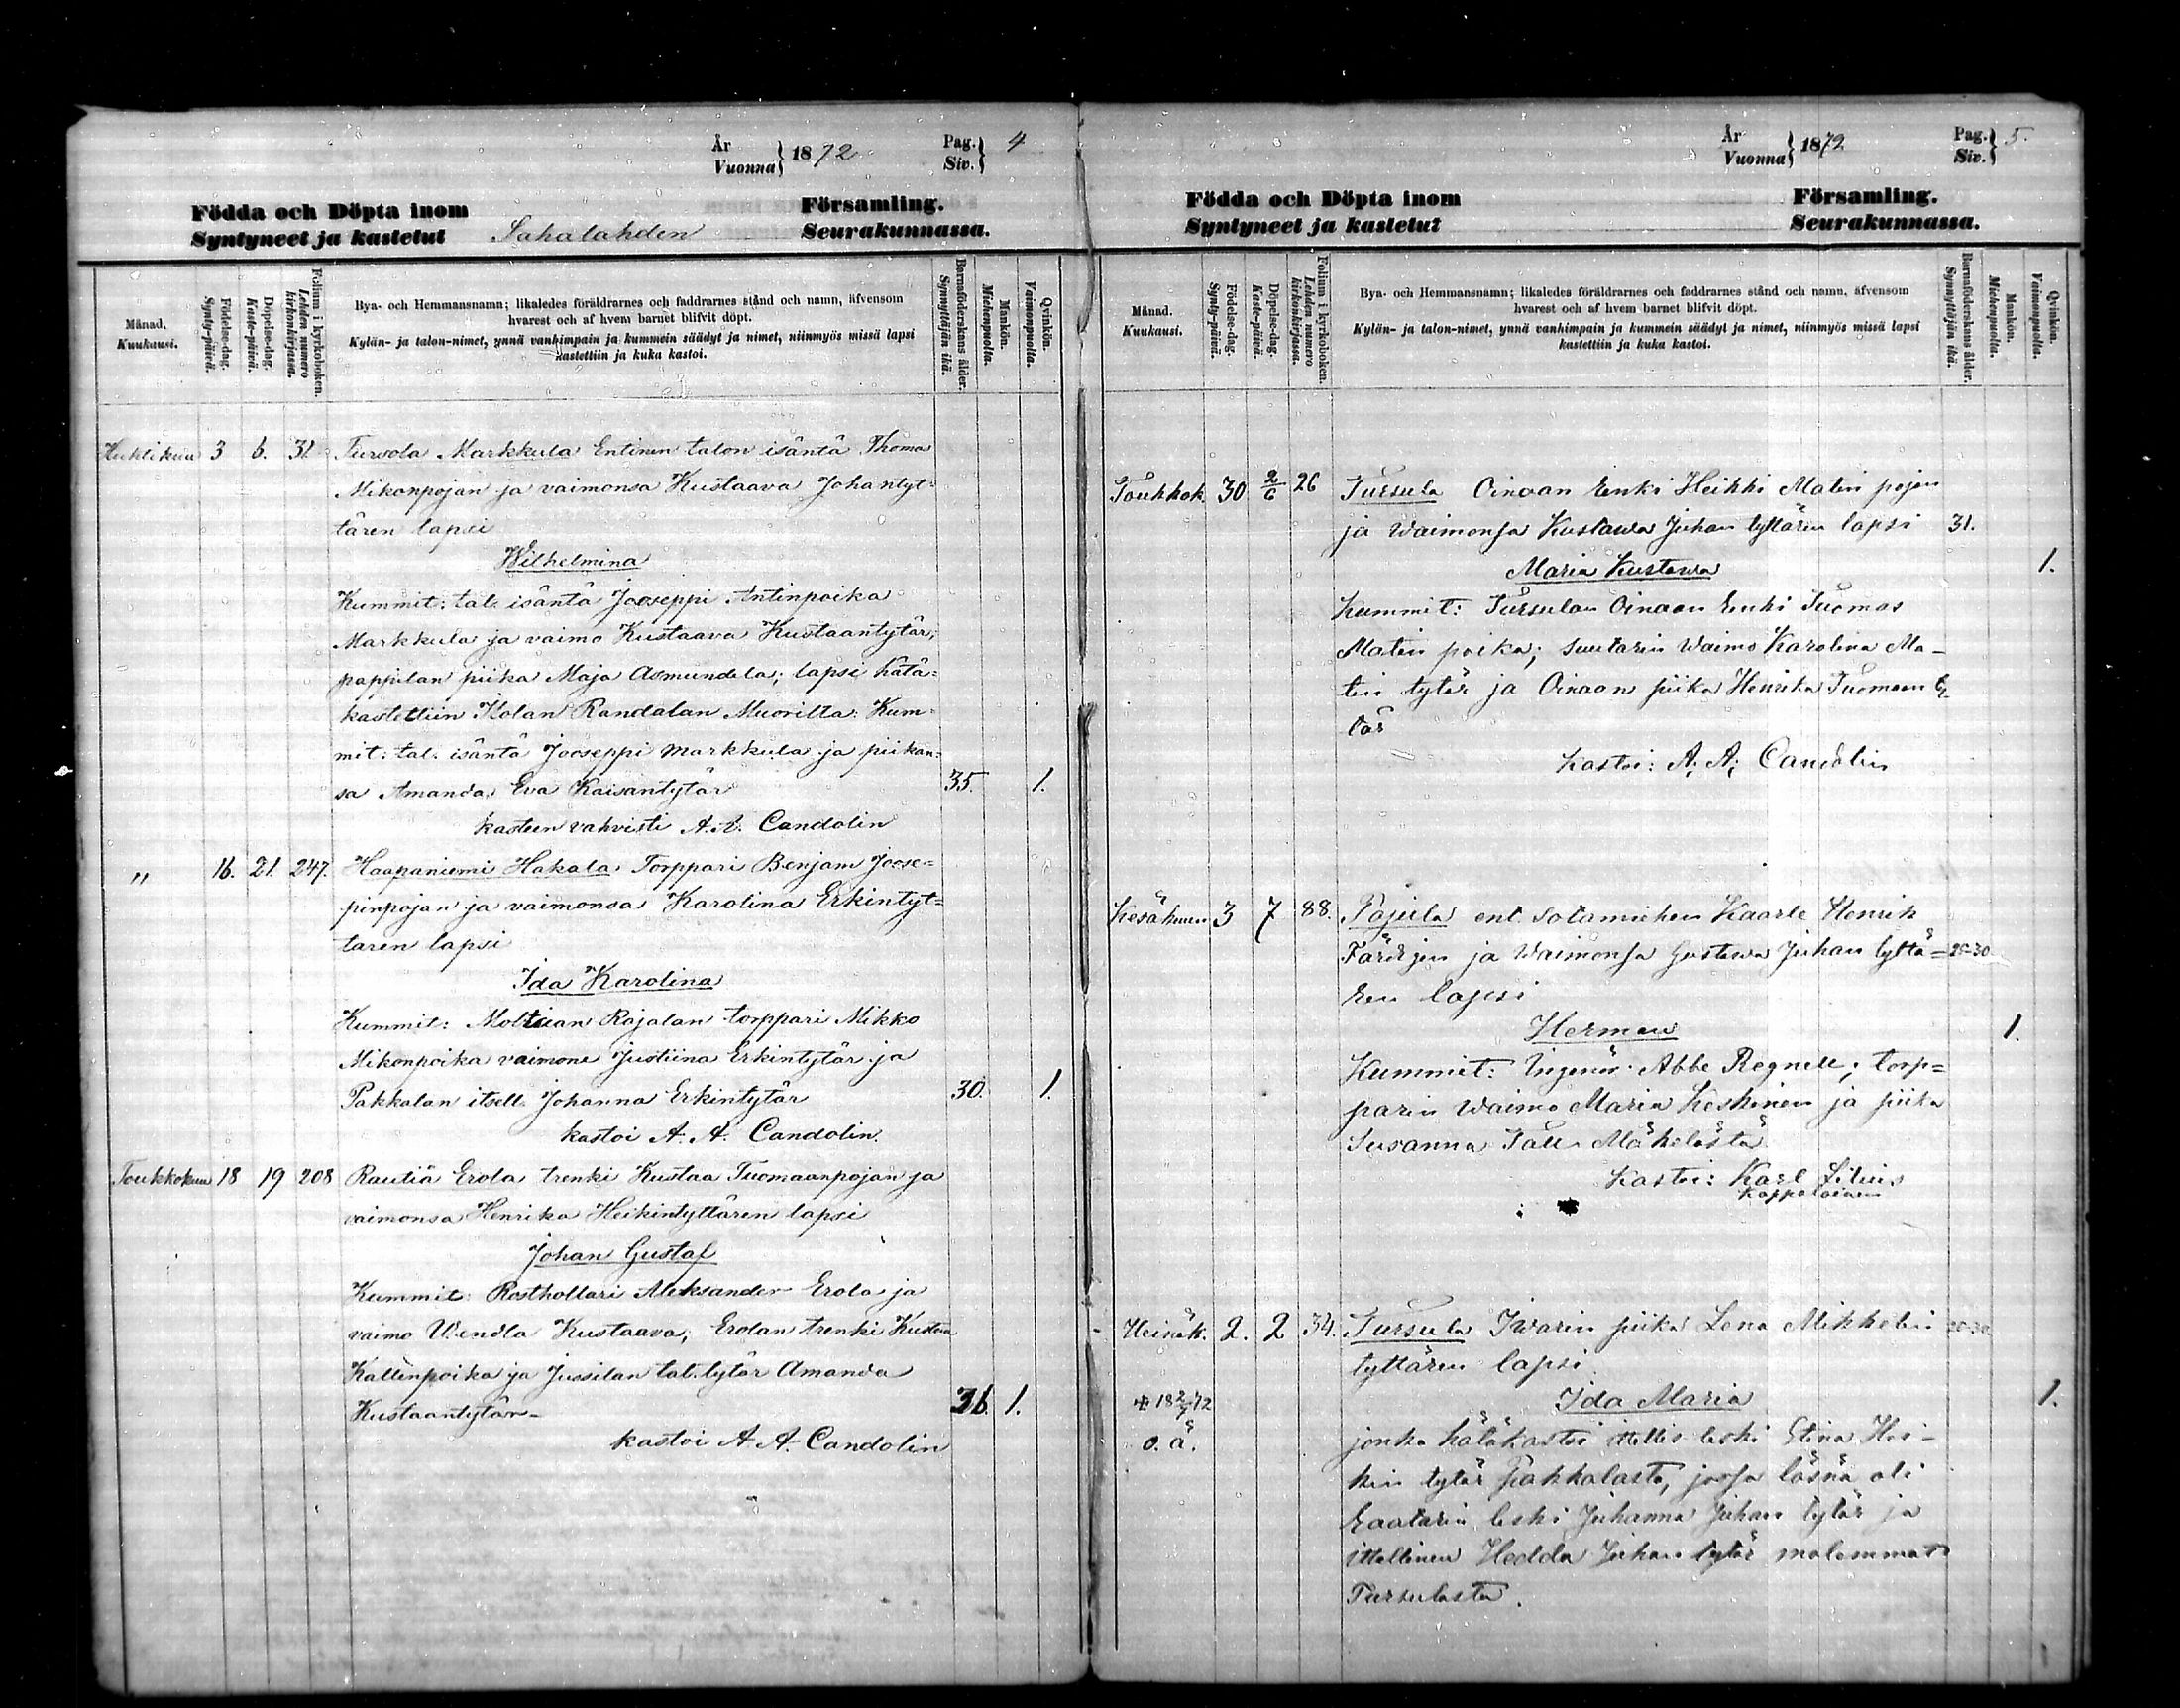 År
Vuonna } 1872
Pag.
Siv. } 4
Födda och Döpta inom Församling.
Syntyneet ja kastetut Sahalahden Seurakunnassa.
Månad.
Kuukausi.
Födelse-dag.
Synty-päivä.
Döpelse-dag.
Kaste-päivä.
Folium i kyrkoboken.
Lehden numero kirkonkirjassa.
Bya- och Hemmansnamn; likaledes föräldrarnes och faddrarnes stånd och namn, äfvensom
hvarest och af hvem barnet blifvit döpt.
Kylän- ja talon-nimet, ynnä vanhimpain ja kummein säädyt ja nimet, niinmyös missä lapsi
kastettiin ja kuka kastoi.
Barnaföderskans ålder.
Synnyttäjän ikä.
Mankön.
Miehenpuolta.
Qvinkön.
Vaimonpuolta.
Huhtikuu 3 6. 31 Tursola Markkula Entinen talon isäntä Thoma
Mikonpojan ja vaimonsa Kustaava Johantyt-
tären lapsi
Wilhelmina
Kummit: tal. isäntä Jooseppi Antinpoika
Markkula ja vaimo Kustaava Kustaantytär;
pappilan piika Maja Asmundela; lapsi hätä-
kastettiin Isolan Randalan Muorilta: Kum-
mit: tal. isäntä Jooseppi Markkula ja piikan-
sa Amanda Eva Kaisantytär 35. 1.
kasteen vahvisti A.A. Candolin
" 16. 21. 247. Haapaniemi Hakala Torppari Benjam Joose-
pinpojan ja vaimonsa Karolina Erkintyt-
taren lapsi
Ida Karolina
Kummit: Moltian Rajalan torppari Mikko
Mikonpoika vaimone Justiina Erkintytär ja
Pakkalan itsell. Johanna Erkintytär 30. 1.
kastoi A. A. Candolin.
Toukkokuu 18 19 208 Rautiä Erola trenki Kustaa Tuomaanpojan ja
vaimonsa Henrika Heikintyttären lapsi
Johan Gustaf
Kummit: Rosthollari Aleksander Erola ja
vaimo Wendla Kustaava; Erolan trenki Kustaa
Kallenpoika ja Jussilan tal. tytär Amanda
Kustaantytär- 36. 1.
kastoi A A. Candolin
År
Vuonna } 1872
Pag.
Siv. } 5.
Födda och Döpta inom Församling.
Syntyneet ja kastetut Seurakunnassa.
Månad.
Kuukausi.
Födelse-dag.
Synty-päivä.
Döpelse-dag.
Kaste-päivä.
Folium i kyrkoboken.
Lehden numero kirkonkirjassa.
Bya- och Hemmansnamn; likaledes föräldrarnes och faddrarnes stånd och namn, äfvensom
hvarest och af hvem barnet blifvit döpt.
Kylän- ja talon-nimet, ynnä vanhimpain ja kummein säädyt ja nimet, niinmyös missä lapsi
kastettiin ja kuka kastoi.
Barnaföderskans ålder.
Synnyttäjän ikä.
Mankön.
Miehenpuolta.
Qvinkön.
Vaimonpuolta.
Toukkok. 30 2/6 26 Tursula Oinaan Renki Heikki Matin pojan
ja Waimonsa Kustawa Juhan tyttären lapsi 31.
Maria Kustawa 1.
Kummit: Tursulan Oinaan Renki Tuomas
Matin poika; Suutarin Waimo Karolina Ma-
tin tytär ja Oinaan piika Henrika Tuomaan ty-
tär
Kastoi: A; A; Candolin
Kesäkuun 3 7 88. Pajula ent. Sotamiehen Kaarle Henrik
Färdijen ja Waimonsa Gustawa Juhan tyttä- 25-30
ren lapsi
Herman 1.
Kummit: Ingenör Abbe Regnell; torp-
parin Waimo Maria Keskinen ja piika
Susanna Mäkelästä
Kastoi: Karl Lilius
Kappalainen
Heinäk. 2. 2 34. Tursula Iwarin piika Lena Mikkelin 25-30
tyttären lapsi.
Ida Maria 1.
18 2/7 72
o. ä.
jonka hätäkastoi ittellis leski Stina Hei-
kin tytär Pakkalasta, jossa läsnä oli
Räätärin leski Juhanna Juhan tytär ja
ittellinen Hedda Juhan tytär molemmat
Tursulasta.